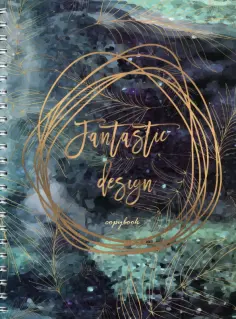 Fantastic
design
copybook